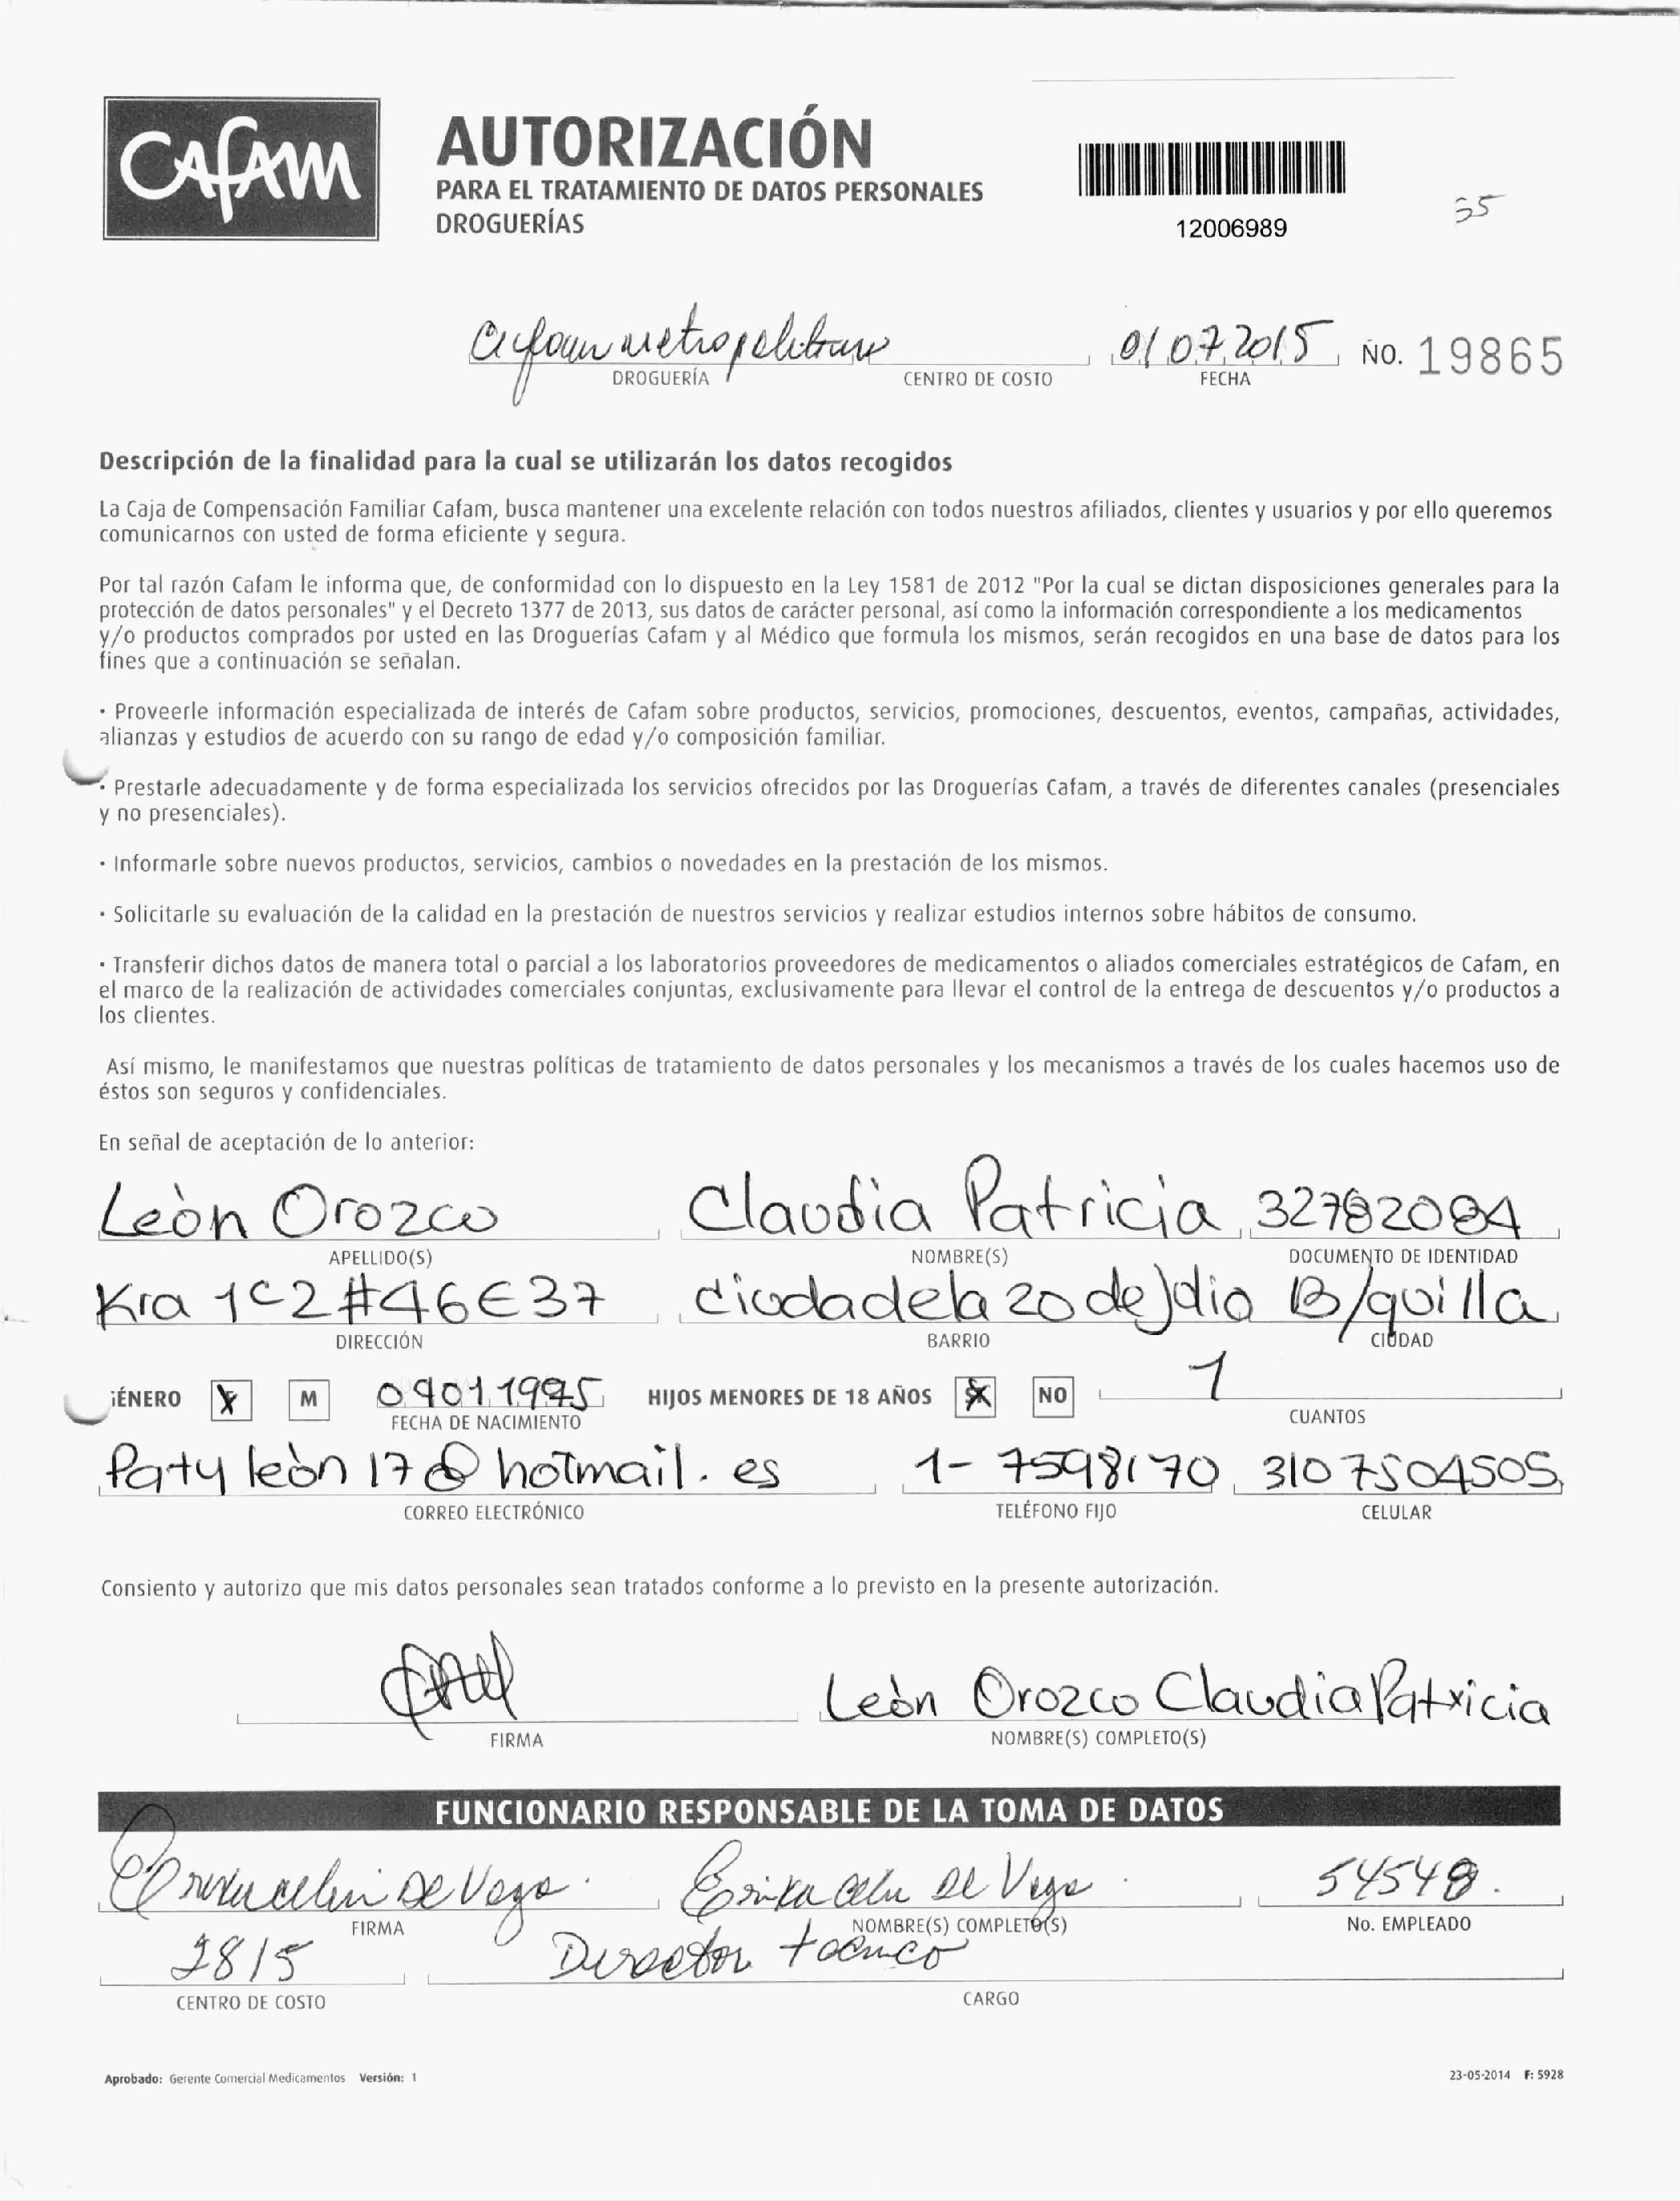 CAFAM
AUTORIZACIÓN
PARA EL TRATAMIENTO DE DATOS PERSONALES
DROGUERÍAS
12006989
35
Cafam metropolitano 01 07 2015 NO. 19865
DROGUERÍA CENTRO DE COSTO FECHA
Descripción de la finalidad para la cual se utilizarán los datos recogidos
La Caja de Compensación Familiar Cafam, busca mantener una excelente relación con todos nuestros afiliados, clientes y usuarios y por ello queremos
comunicarnos con usted de forma eficiente y segura.
Por tal razón Cafam le informa que, de conformidad con lo dispuesto en la Ley 1581 de 2012 "Por la cual se dictan disposiciones generales para la
protección de datos personales" y el Decreto 1377 de 2013, sus datos de carácter personal, así como la información correspondiente a los medicamentos
y/o productos comprados por usted en las Droguerías Cafam y al Médico que formula los mismos, serán recogidos en una base de datos para los
fines que a continuación se señalan.
· Proveerle información especializada de interés de Cafam sobre productos, servicios, promociones, descuentos, eventos, campañas, actividades,
alianzas y estudios de acuerdo con su rango de edad y/o composición familiar.
· Prestarle adecuadamente y de forma especializada los servicios ofrecidos por las Droguerías Cafam, a través de diferentes canales (presenciales
y no presenciales).
· Informarle sobre nuevos productos, servicios, cambios o novedades en la prestación de los mismos.
· Solicitarle su evaluación de la calidad en la prestación de nuestros servicios y realizar estudios internos sobre hábitos de consumo.
· Transferir dichos datos de manera total o parcial a los laboratorios proveedores de medicamentos o aliados comerciales estratégicos de Cafam, en
el marco de la realización de actividades comerciales conjuntas, exclusivamente para llevar el control de la entrega de descuentos y/o productos a
los clientes.
Así mismo, le manifestamos que nuestras políticas de tratamiento de datos personales y los mecanismos a través de los cuales hacemos uso de
éstos son seguros y confidenciales.
En señal de aceptación de lo anterior:
Leòn Orozco Claudia Patricia 32782084
APELLIDO(S) NOMBRE(S) DOCUMENTO DE IDENTIDAD
Kra 1C2 #46E37 ciudadela 20 de Jdio B/quilla
DIRECCIÓN BARRIO CIUDAD
GÉNERO X M 09011995 HIJOS MENORES DE 18 AÑOS X NO 1
FECHA DE NACIMIENTO CUANTOS
Paty leòn 17@hotmail.es 1-7598170 3107504505
CORREO ELECTRÓNICO TELÉFONO FIJO CELULAR
Consiento y autorizo que mis datos personales sean tratados conforme a lo previsto en la presente autorización.
Leòn Orozco Claudia Patricia
FIRMA NOMBRE(S) COMPLETO(S)
FUNCIONARIO RESPONSABLE DE LA TOMA DE DATOS
De Vega Erika De Vega 54548.
FIRMA NOMBRE(S) COMPLETO(S) No. EMPLEADO
2815 Director tecnico
CENTRO DE COSTO CARGO
Aprobado: Gerente Comercial Medicamentos Versión: 1 23-05-2014 F: 5928